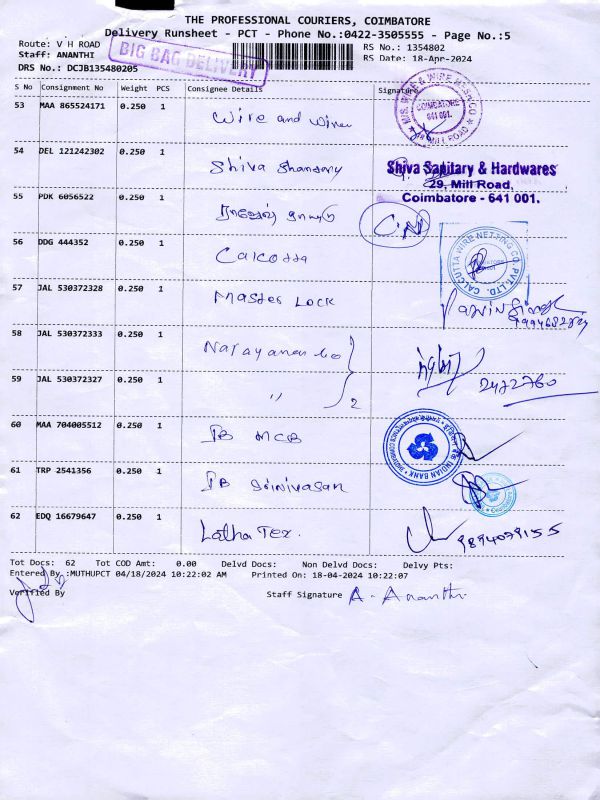 THE PROFESSIONAL COURIERS, COIMBATORE
Delivery Runsheet - PCT - Phone No.:0422-3505555 - Page No.:5
Route: V H ROAD
RS No.: 1354802
Staff: ANANTHI
BIG BAG DELIVERY
RS Date: 18-Apr-2024
DRS No.: DCJB135480205
S No Consignment No Weight PCS Consignee Details Signature
53 MAA 865524171 0.250 1 Wire and Wires
COIMBATORE 641 001.
MILL ROAD
54 DEL 121242302 0.250 1 Shiva
Shiva Sanitary & Hardwares
29, Mill Road,
Coimbatore - 641 001.
55 PDK 6056522 0.250 1
56 DDG 444352 0.250 1 Calcotta
CALCUTTA WIRE NETTING CO. PVT. LTD.
57 JAL 530372328 0.250 1 Master Lock
58 JAL 530372333 0.250 1 Narayanan &co
59 JAL 530372327 0.250 1 " } 2 2472760
60 MAA 704005512 0.250 1 IB MCB
INDIAN BANK
61 TRP 2541356 0.250 1 IB Srinivasan
62 EDQ 16679647 0.250 1 Latha Tex. 9894079155
Tot Docs: 62 Tot COD Amt: 0.00 Delvd Docs: Non Delvd Docs: Delvy Pts:
Entered By :MUTHUPCT 04/18/2024 10:22:02 AM Printed On: 18-04-2024 10:22:07
Verified By Staff Signature A. Ananthi